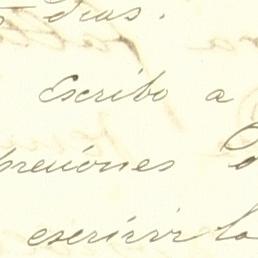 días.
Escribo a
presiones
escrivir la